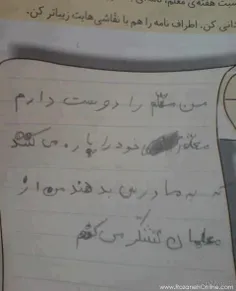 نی کن. اطراف نامه را هم با نقاشی‌هایت زیباتر کن.
من معلم را دوست دارم
معلم خود را پاره می کند
که به ما درس بدهند من از
معلمان تشکر می کنم
www.RozaneInOnline.com